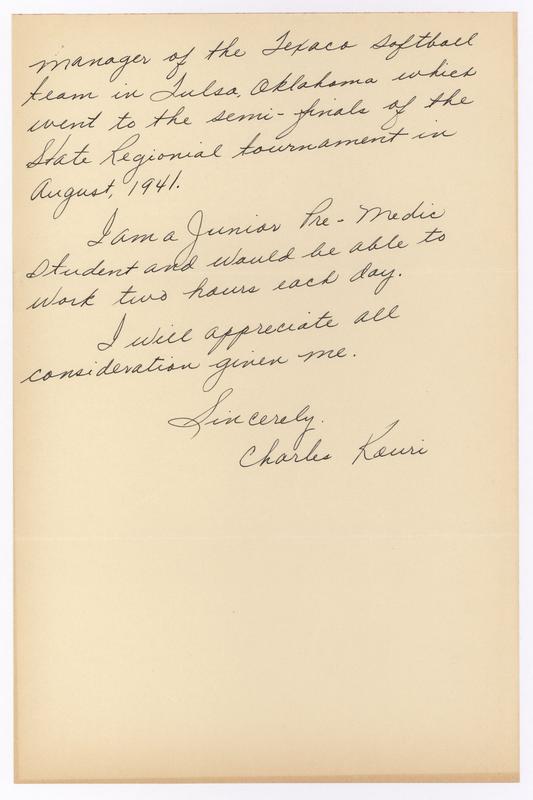 manager of the Texaco softball
team in Tulsa, Oklahoma which
went to the semi-finals of the
State Regionial tournament in
August, 1941.
I am a Junior Pre-Medic
Student and would be able to
work two hours each day.
I will appreciate all
consideration given me.
Sincerely.
Charles Kouri